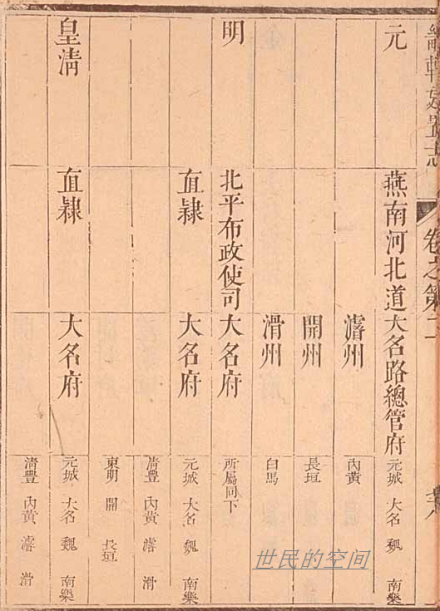 卷之第二
元 燕南河北道 大名路總管府 元城 大名 魏 南樂
濬州 內黃
開州 長垣
滑州 白馬
明 北平布政使司 大名府 所屬同下
直隷 大名府 元城 大名 魏 南樂
清豐 內黃 濬 滑
東明 開 長垣
皇清 直隷 大名府 元城 大名 魏 南樂
清豐 內黃 濬 滑
世民的空间